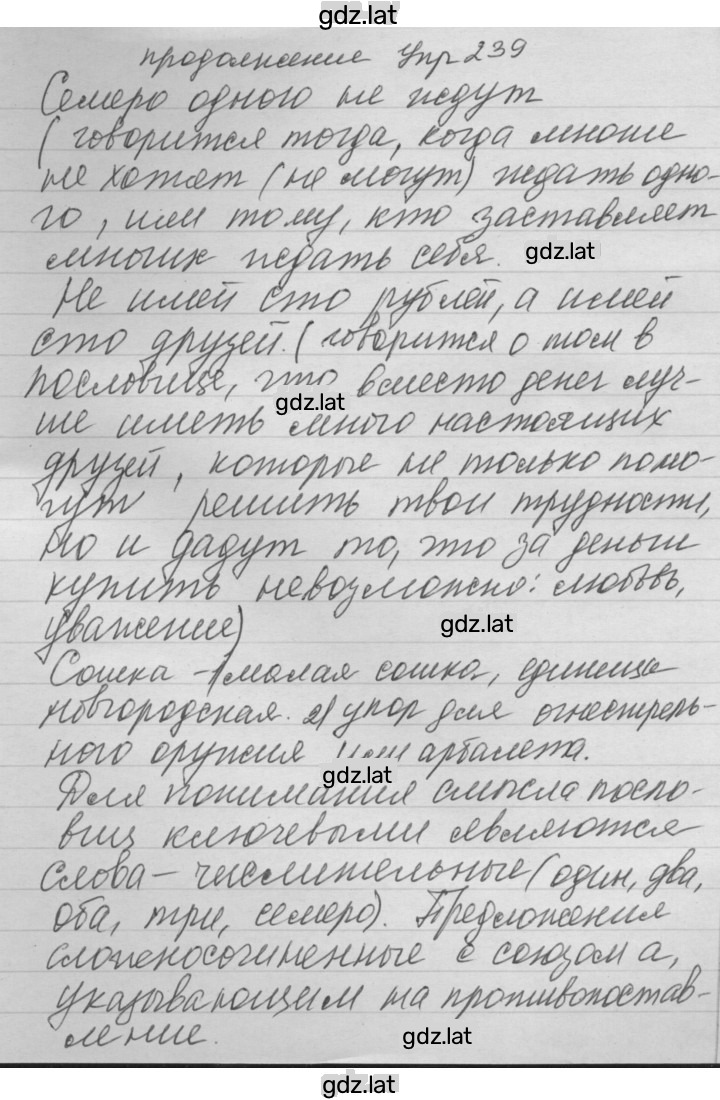 gdz.lat
продолжение Упр 239
Семеро одного не ждут
(говорится тогда, когда многие
не хотят (не могут) ждать одно-
го, или тому, кто заставляет
многих ждать себя.
gdz.lat
Не имей сто рублей, а имей
сто друзей. (говорится о том в
пословице, что вместо денег луч-
gdz.lat
ше иметь много настоящих
друзей, которые не только помо-
гут решить твои трудности,
но и дадут то, что за деньги
купить невозможно: любовь,
уважение)
gdz.lat
Сошка - 1) малая сошка, единица
новгородская. 2) упор для огнестрель-
ного оружия или арбалета.
gdz.lat
Для понимания смысла посло-
виц ключевыми являются
слова - числительные (один, два,
оба, три, семеро). Предложения
сложносочиненные с союзом а,
указывающим на противопостав-
ление.
gdz.lat
gdz.lat